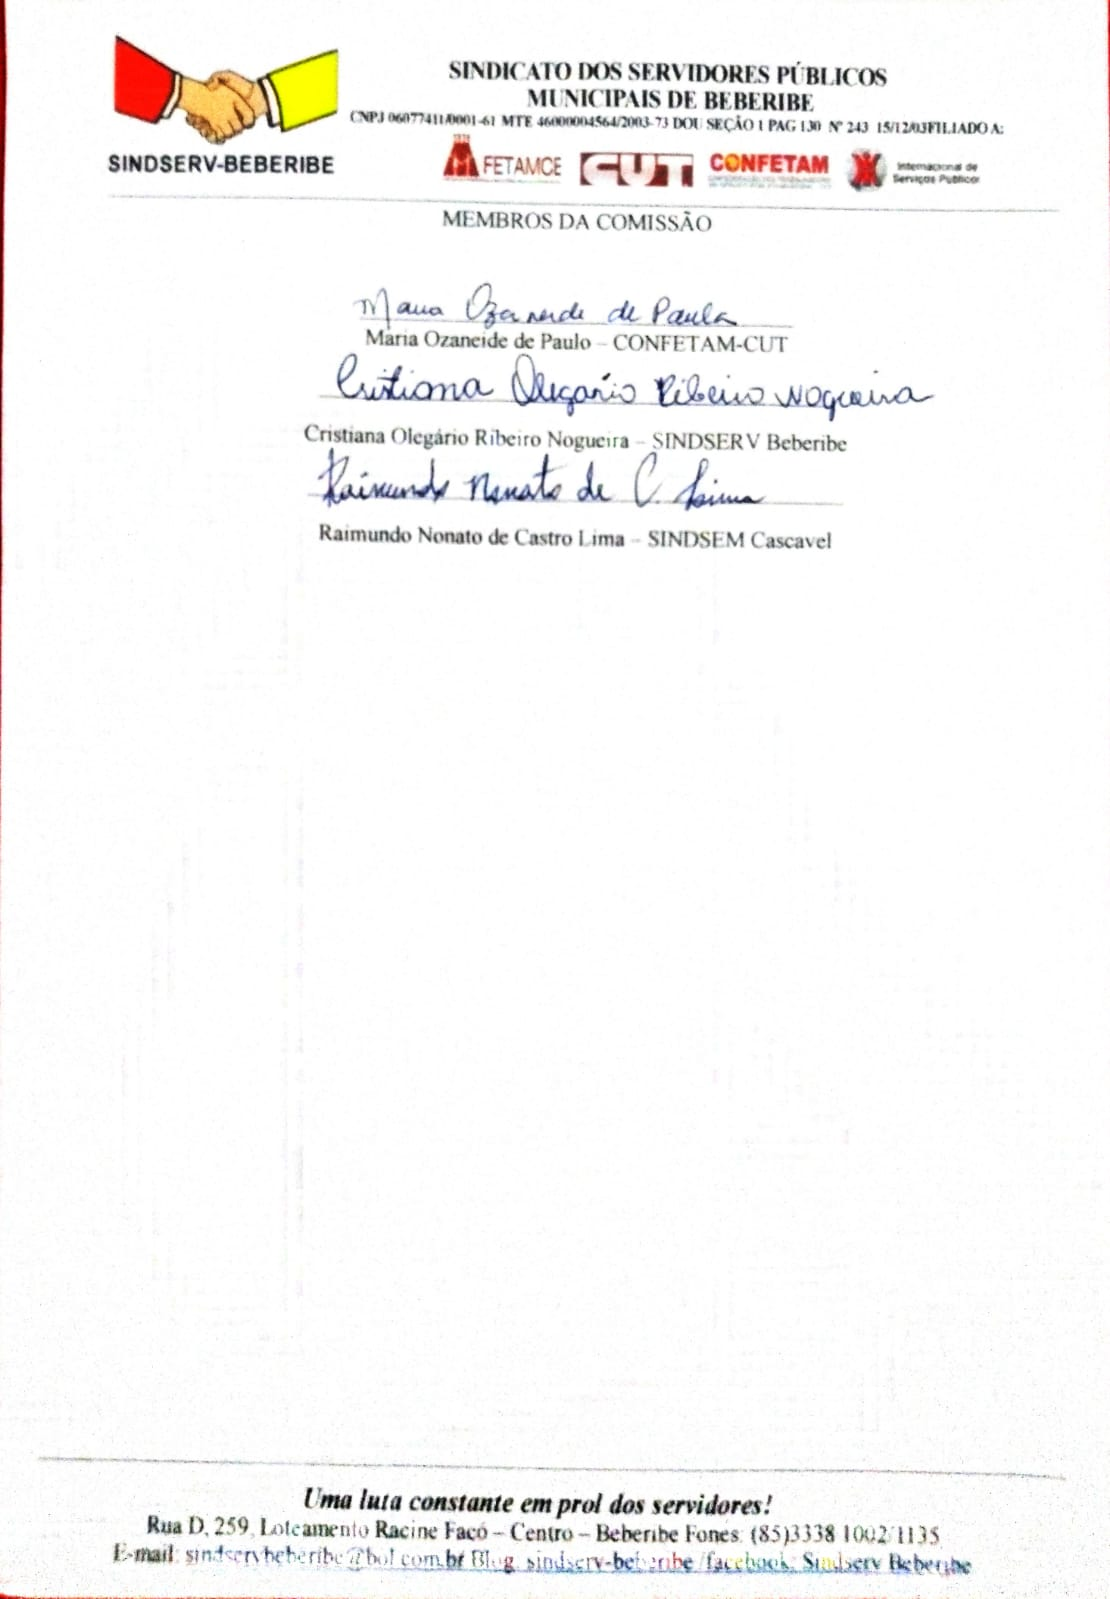 SINDICATO DOS SERVIDORES PÚBLICOS
MUNICIPAIS DE BEBERIBE
CNPJ 06077411/0001-61 MTE 46000004564/2003-73 DOU SEÇÃO 1 PAG 130 Nº 243 15/12/03FILIADO A:
SINDSERV-BEBERIBE
FETAMCE CUT CONFETAM Internacional de
Serviços Públicos
MEMBROS DA COMISSÃO
Maria Ozaneide de Paula
Maria Ozaneide de Paulo – CONFETAM-CUT
Cristiana Olegário Ribeiro Nogueira
Cristiana Olegário Ribeiro Nogueira – SINDSERV Beberibe
Raimundo Nonato de C. Lima
Raimundo Nonato de Castro Lima – SINDSEM Cascavel
Uma luta constante em prol dos servidores!
Rua D, 259, Loteamento Racine Facó – Centro – Beberibe Fones: (85)3338 1002/1135
E-mail: sindservbeberibe@bol.com.br Blog: sindserv-beberibe /facebook: Sindserv Beberibe